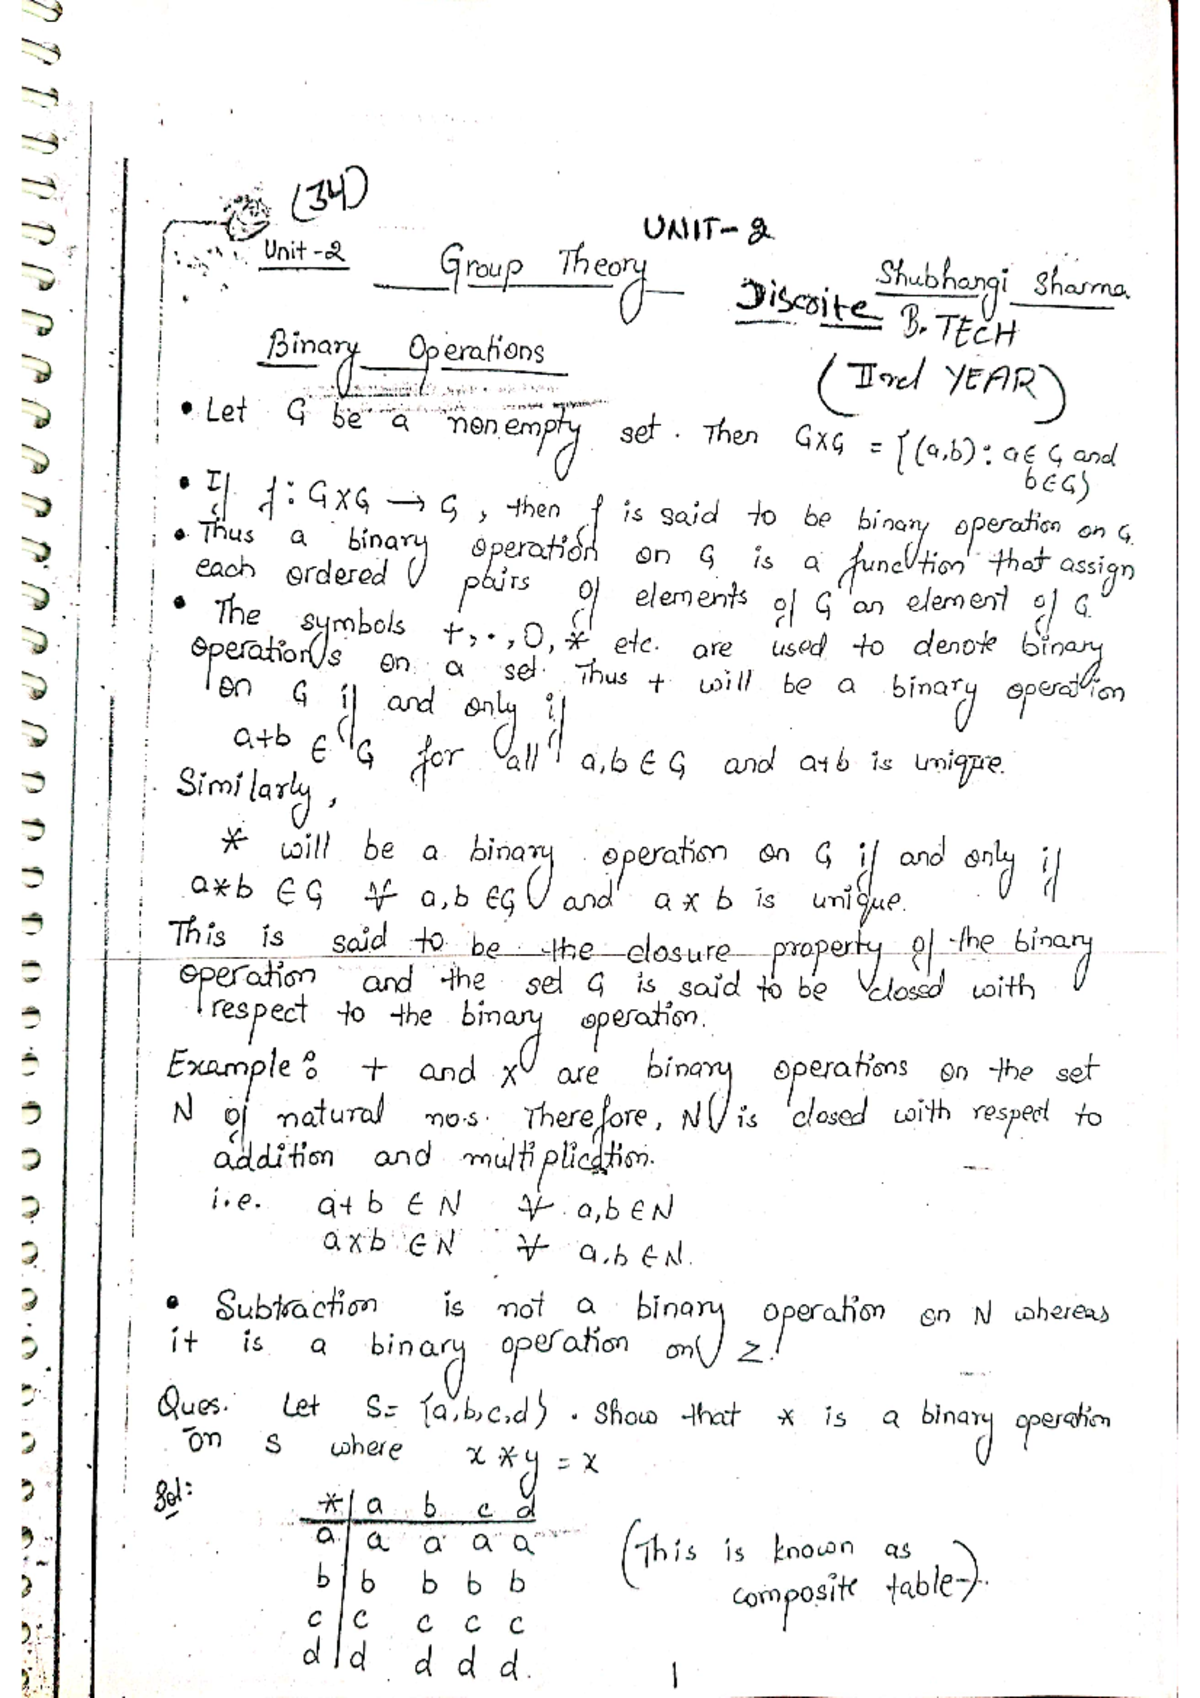 (34)
UNIT-2
Unit-2
Group Theory
Shubhangi Sharma
Discrite
B.TECH
(IInd YEAR)
Binary Operations
• Let G be a nonempty set. Then G×G = {(a,b): a∈G and
b∈G}
• If f: G×G → G, then f is said to be binary operation on G.
• Thus a binary operation on G is a function that assign
each ordered pairs of elements of G an element of G.
• The symbols +, ·, O, * etc. are used to denote binary
operations on a set. Thus + will be a binary operation
on G if and only if
a+b ∈ G for all a,b ∈ G and a+b is unique.
Similarly,
* will be a binary operation on G if and only if
a*b ∈ G ∀ a,b ∈G and a × b is unique.
This is said to be the closure property of the binary
operation and the set G is said to be closed with
respect to the binary operation.
Example: + and × are binary operations on the set
N of natural no.s. Therefore, N is closed with respect to
addition and multiplication.
i.e. a+b ∈ N ∀ a,b ∈ N
a×b ∈ N ∀ a,b ∈ N.
• Subtraction is not a binary operation on N whereas
it is a binary operation on Z.
Ques. Let S= {a,b,c,d}. Show that * is a binary operation
on S where x * y = x
Sol:
* | a b c d
a | a a a a
b | b b b b
c | c c c c
d | d d d d.
(This is known as
composite table).
1